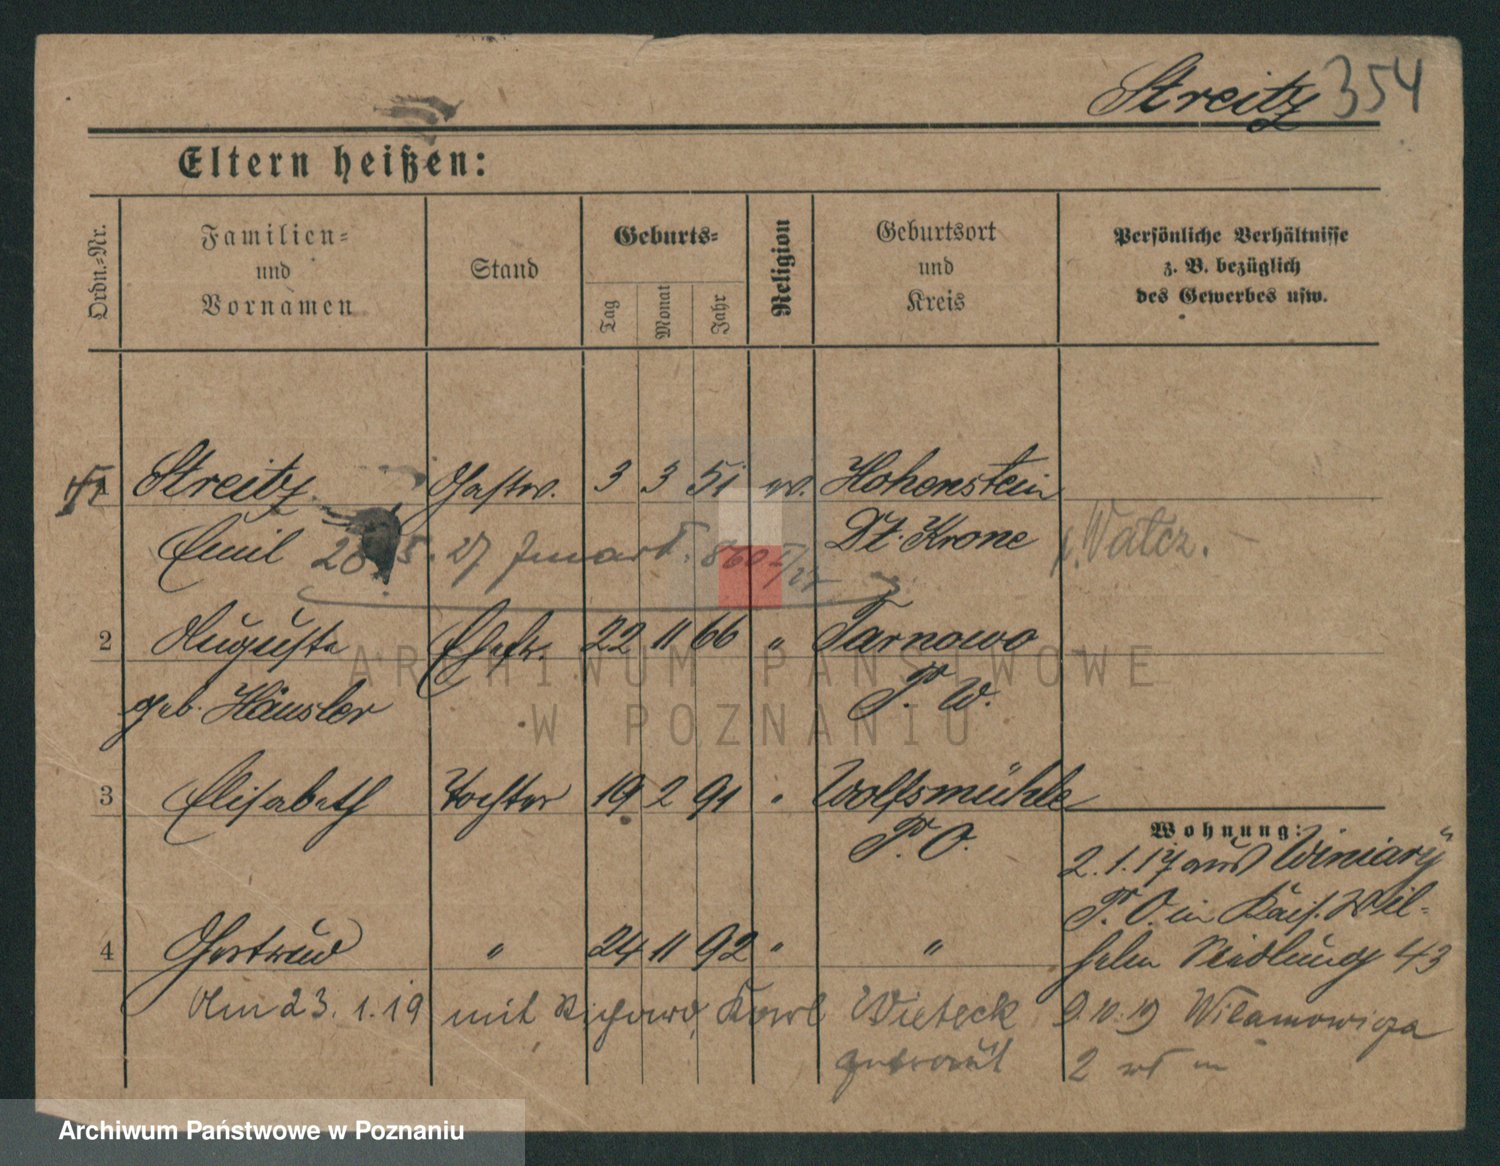 Streitz 354
Eltern heißen:
Ordn.-Nr.
Familien-
und
Vornamen
Stand
Geburts-
Tag
Monat
Jahr
Religion
Geburtsort
und
Kreis
Persönliche Verhältnisse
z. B. bezüglich
des Gewerbes usw.
Streitz Gastw. 3 3 51 ev. Hohenstein
Emil Dt. Krone p. Wałcz.
28 5. 27
2 Auguste Ehefr. 22 11 66 " Tarnowo
geb. Häusler P. W.
3 Elisabeth Tochter 19 2 91 " Wolfsmühle
P. O.
Wohnung:
2.1.17 aus Winiary
P. O. in Kais. Wil-
helm Siedlung 43
4 Gertrud " 24 11 92 " "
Am 23.1.19 mit Richard, Karl Wieteck
getraut
9.10.19 Wilamowicza
2
ARCHIWUM PAŃSTWOWE
W POZNANIU
Archiwum Państwowe w Poznaniu